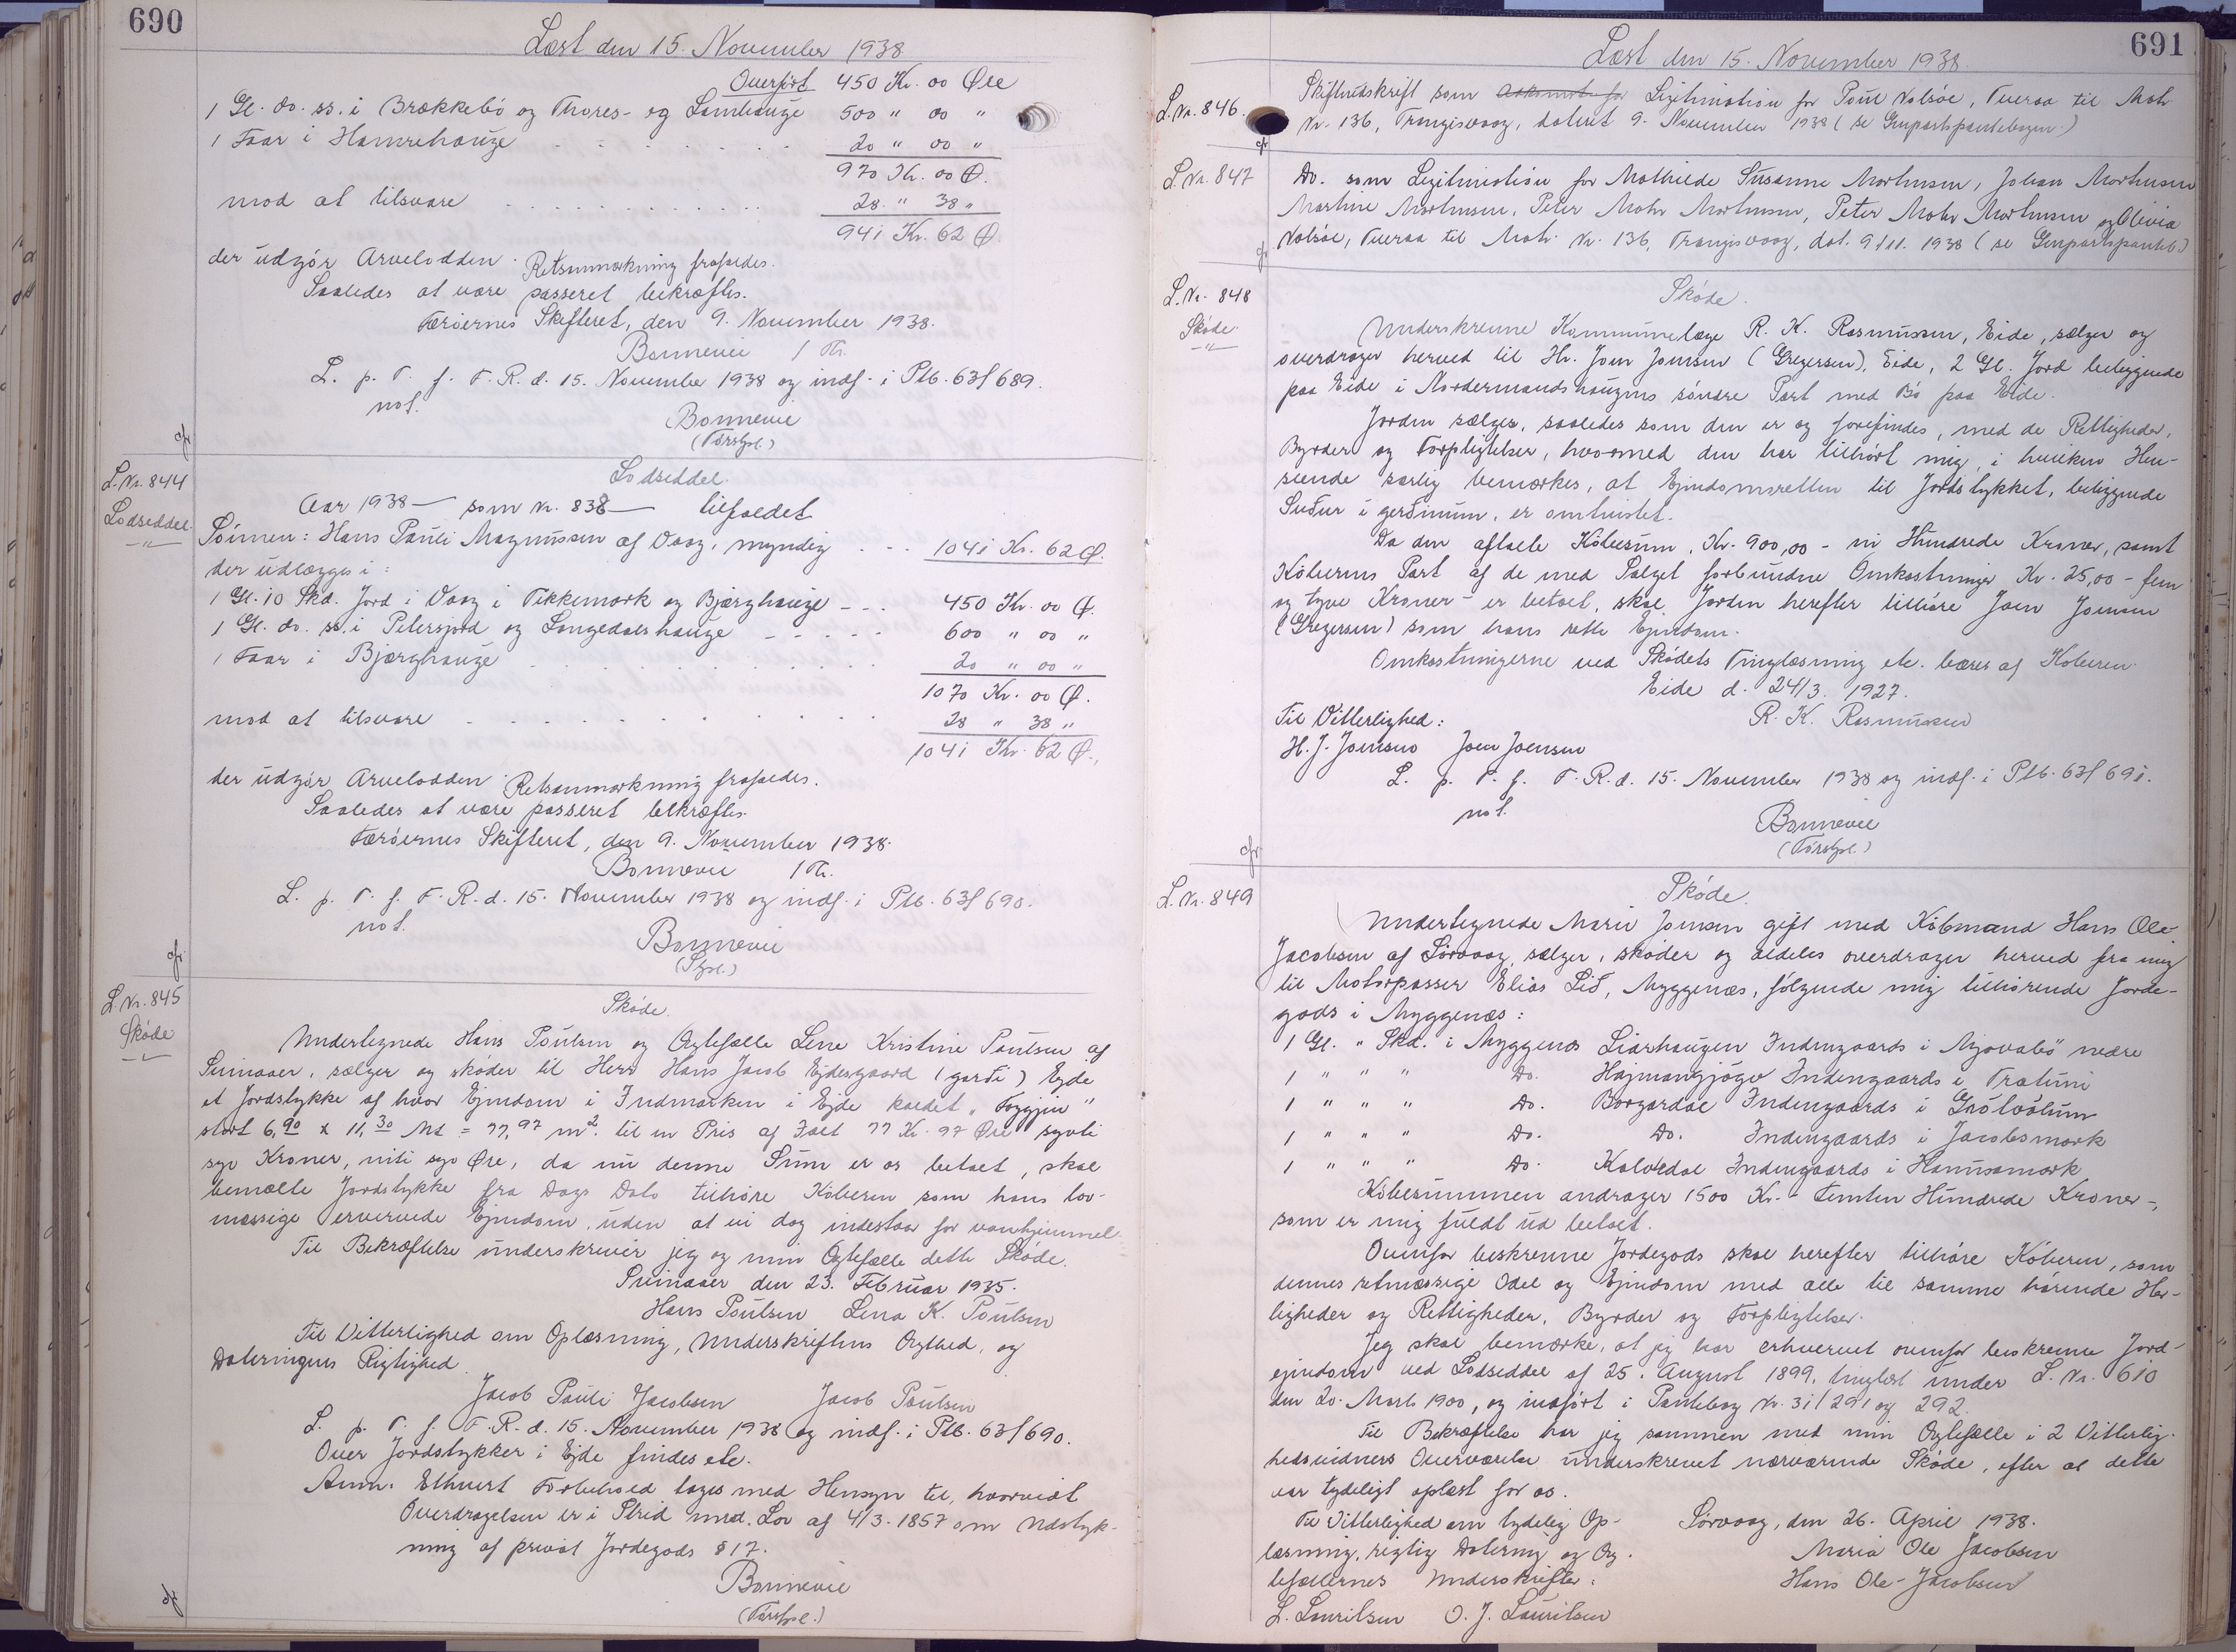 690
Læst den 15. November 1938
Overført 450 Kr. 00 Øre
1 Gl. do. ss. i Brækkebø og Thores- og Lambhauge 500 " 00 "
1 Faar i Hamrehauge 20 " 00 "
970 Kr. 00 Ø.
mod at tilsvare 28 " 38 "
941 Kr. 62 Ø.
der udgør Arvelodden. Retsanmærkning frafaldes.
Saaledes at være passeret bekræftes.
Færøernes Skifteret, den 9. November 1938.
Bonnevie
L. p. T. f. F. R. d. 15. November 1938 og indf. i Ptb. 63f 689.
not.
Bonnevie
L. Nr. 844
Lodseddel
Lodseddel.
Aar 1938 — som Nr. 838 — tilfaldet
Sønnen: Hans Pauli Magnussen af Vaag, myndig 1041 Kr. 62 Ø.
der udlægges i:
1 Gl. 10 Skd. Jord i Vaag i Tekkemark og Bjærghauge 450 Kr. 00 Ø.
1 Gl. do. ss. i Petersjord og Langedalshauge 600 " 00 "
1 Faar i Bjærghauge 20 " 00 "
1070 Kr. 00 Ø.
mod at tilsvare 28 " 38 "
1041 Kr. 62 Ø.
der udgør Arvelodden. Retsanmærkning frafaldes.
Saaledes at være passeret bekræftes.
Færøernes Skifteret, den 9. November 1938.
Bonnevie
L. p. T. f. F. R. d. 15. November 1938 og indf. i Ptb. 63f 690.
not.
Bonnevie
L. Nr. 845
Skøde
Skøde.
Undertegnede Hans Poulsen og Ægtefælle Lene Kristine Poulsen af
Svinaaer, sælger og skøder til Herr Hans Jacob Ejdesgaard (garði) Ejde
et Jordstykke af hvor Ejendom i Indmarken i Ejde kaldet "Toggjin"
stort 6,90 x 11,30 Mt = 77,97 m². til en Pris af Ialt 77 Kr. 97 Øre syvti
syv Kroner, niti syv Øre, da nu denne Sum er os betalt, skal
bemældte Jordstykke fra Dags Dato tilhøre Køberen som hans lov-
mæssige ervervede Ejendom, uden at vi dog indestaar for vanhjemmel.
Til Bekræftelse underskriver jeg og min Ægtefælle dette Skøde.
Svinaaer den 23. Februar 1935.
Hans Poulsen Lena K. Poulsen
Til Vitterlighed om Oplæsning, Underskriftens Ægthed, og
Dateringens Rigtighed.
Jacob Pauli Jacobsen Jacob Poulsen
L. p. T. f. F. R. d. 15. November 1938 og indf. i Ptb. 63f 690.
Over Jordstykker i Ejde findes etc.
Anm. Ethvert Forbehold tages med Hensyn til, hvorvidt
Overdragelsen er i Strid med Lov af 4/3. 1857 om Udstyk-
ning af privat Jordegods § 17.
Bonnevie
691
Læst den 15. November 1938.
L. Nr. 846.
Skifteudskrift som Adkomst for Legitimation for Poul Nolsøe, Tveraa til Matr.
Nr. 136, Trangisvaag, dateret 9. November 1938 (se Genpartspantebogen.)
L. Nr. 847
Do. som Legitimation for Mathilde Susanne Mortensen, Johan Mortensen
Martine Mortensen, Peter Mohr Mortensen, Peter Mohr Mortensen og Olivia
Nolsøe, Tveraa til Matr. Nr. 136, Trangisvaag, dat. 9/11. 1938 (se Genpartspanteb.)
L. Nr. 848
Skøde.
Skøde.
Underskrevne Kommunelæge R. K. Rasmussen, Eide, sælger og
overdrager herved til Hr. Joen Joensen (Gregersen), Eide, 2 Gl. Jord beliggende
paa Eide i Nordermandshaugens søndre Part med Bø paa Eide.
Jorden sælges, saaledes som den er og forefindes, med de Rettigheder,
Byrder og Forpligtelser, hvormed den har tilhørt mig, i hvilken Hen-
seende særlig bemærkes, at Ejendomsretten til Jordstykket, beliggende
Suður i gerðinum, er omtvistet.
Da den aftalte Købesum, Kr. 900,00 - ni Hundrede Kroner, samt
Køberens Part af de med Salget forbundne Omkostninger Kr. 25,00 - fem
og tyve Kroner - er betalt, skal Jorden herefter tilhøre Joen Joensen
(Gregersen) som hans rette Ejendom.
Omkostningerne ved Skødets Tinglæsning etc. bæres af Køberen.
Eide d. 24/3. 1927.
R. K. Rasmussen
Til Vitterlighed:
H. J. Joensen Joen Joensen
L. p. T. f. F. R. d. 15. November 1938 og indf. i Ptb. 63f 691.
not.
Bonnevie
L. Nr. 849
Skøde.
Undertegnede Maria Joensen gift med Købmand Hans Ole
Jacobsen af Sørvaag, sælger, skøder og aldeles overdrager herved fra mig
til Motorpasser Elias Lið, Myggenæs, følgende mig tilhørende Jorde-
gods i Myggenæs:
1 Gl. " Skd. i Myggenæs Liarhaugen Indengaards i Mjovabø nedre
1 " " " Do. Hajmangjógv Indengaards i Trøtuni
1 " " " Do. Borgardal Indengaards i Grótvølum
1 " " " Do. Do. Indengaards i Jacobsmark
1 " " " Do. Kalvedal Indengaards i Hanusamark
Købesummen andrager 1500 Kr. - femten Hundrede Kroner -,
som er mig fuldt ud betalt.
Ovenfor beskrevne Jordegods skal herefter tilhøre Køberen, som
dennes retmæssige Odel og Ejendom med alle til samme hørende Her-
ligheder og Rettigheder, Byrder og Forpligtelser.
Jeg skal bemærke, at jeg har erhvervet ovenfor beskrevne Jord-
ejendom ved Lodseddel af 25. August 1899, tinglæst under L. Nr. 610
den 20. Marts 1900, og indført i Pantebog Nr. 31/291 og 292.
Til Bekræftelse har jeg sammen med min Ægtefælle i 2 Vitterlig-
hedsvidners Overværelse underskrevet nærværende Skøde, efter at dette
var tydeligt oplæst for os.
Til Vitterlighed om tydelig Op- Sørvaag, den 26. April 1938.
læsning, rigtig Datering og Æg- Maria Ole Jacobsen
tefællernes Underskrifter: Hans Ole-Jacobsen
L. Lauritsen O. J. Lauritsen